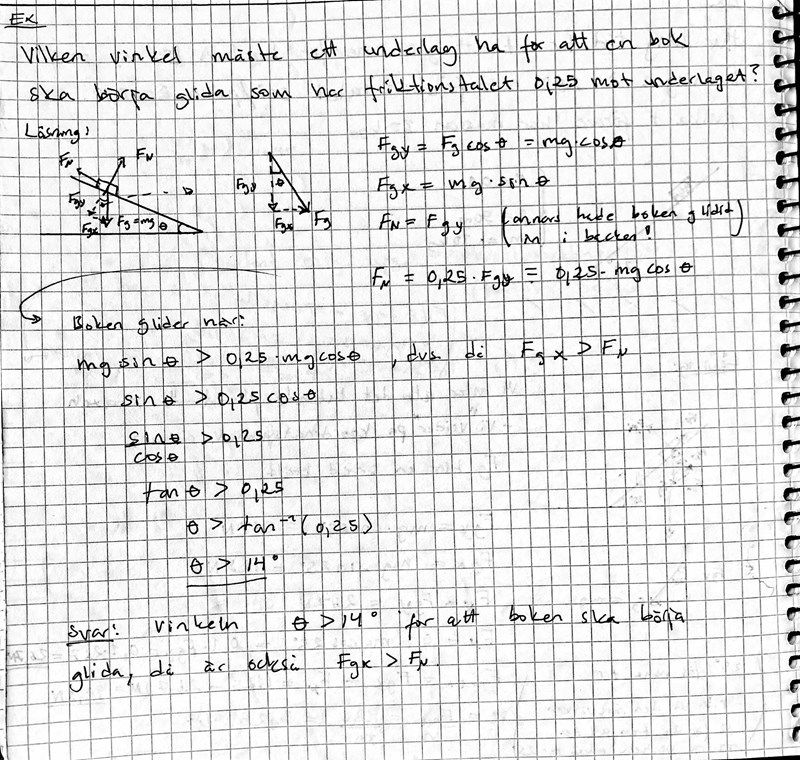 Ex
Vilken vinkel måste ett underlag ha för att en bok
ska börja glida som har friktionstalet 0,25 mot underlaget?
Lösning:
Fμ FN
Fgy Fgx Fg=mg θ
Fgy θ Fgx Fg
Fgy = Fg cos θ = mg·cosθ
Fgx = mg · sin θ
FN = Fgy (annars hade boken glidit in i backen!)
Fμ = 0,25 · Fgy = 0,25 · mg cos θ
Boken glider när:
mg sin θ > 0,25 · mg cosθ , dvs då Fgx > Fμ
sin θ > 0,25 cos θ
sinθ/cosθ > 0,25
tan θ > 0,25
θ > tan⁻¹(0,25)
θ > 14°
Svar: vinkeln θ > 14° för att boken ska börja
glida, då är också Fgx > Fμ.